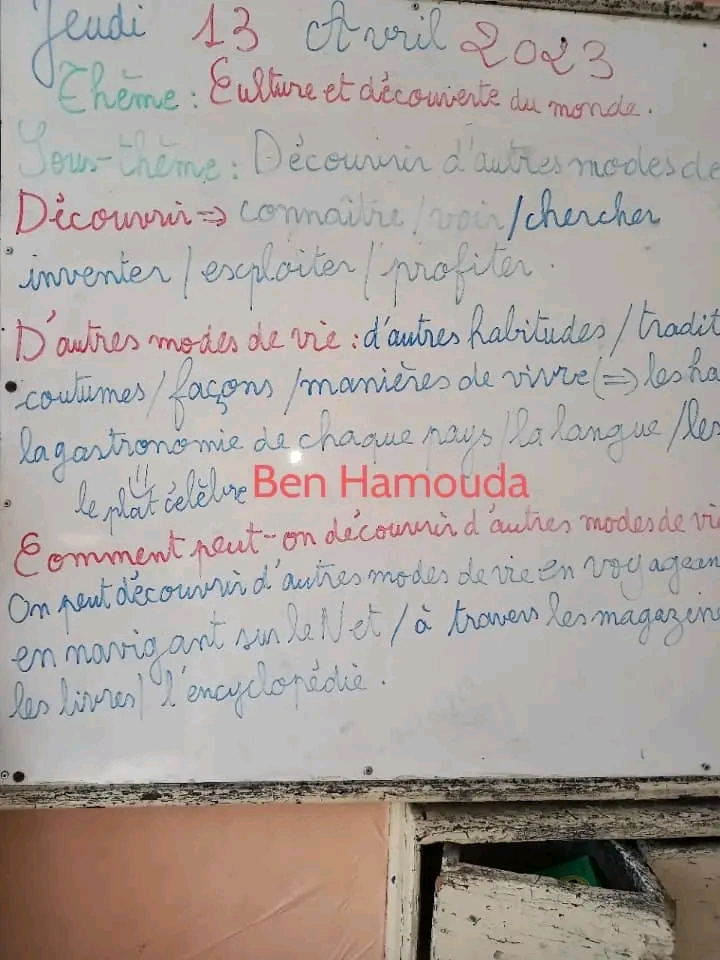 Jeudi 13 Avril 2023
Thème : Culture et découverte du monde.
Sous-thème : Découvrir d'autres modes de
Découvrir => connaître / voir / chercher
inventer / exploiter / profiter.
D'autres modes de vie : d'autres habitudes / tradit
coutumes / façons / manières de vivre (=> les ha
la gastronomie de chaque pays / la langue / les
le plat célèbre
Ben Hamouda
Comment peut-on découvrir d'autres modes de vi
On peut découvrir d'autres modes de vie en voyagean
en navigant sur le Net / à travers les magazin
les livres / l'encyclopédie.